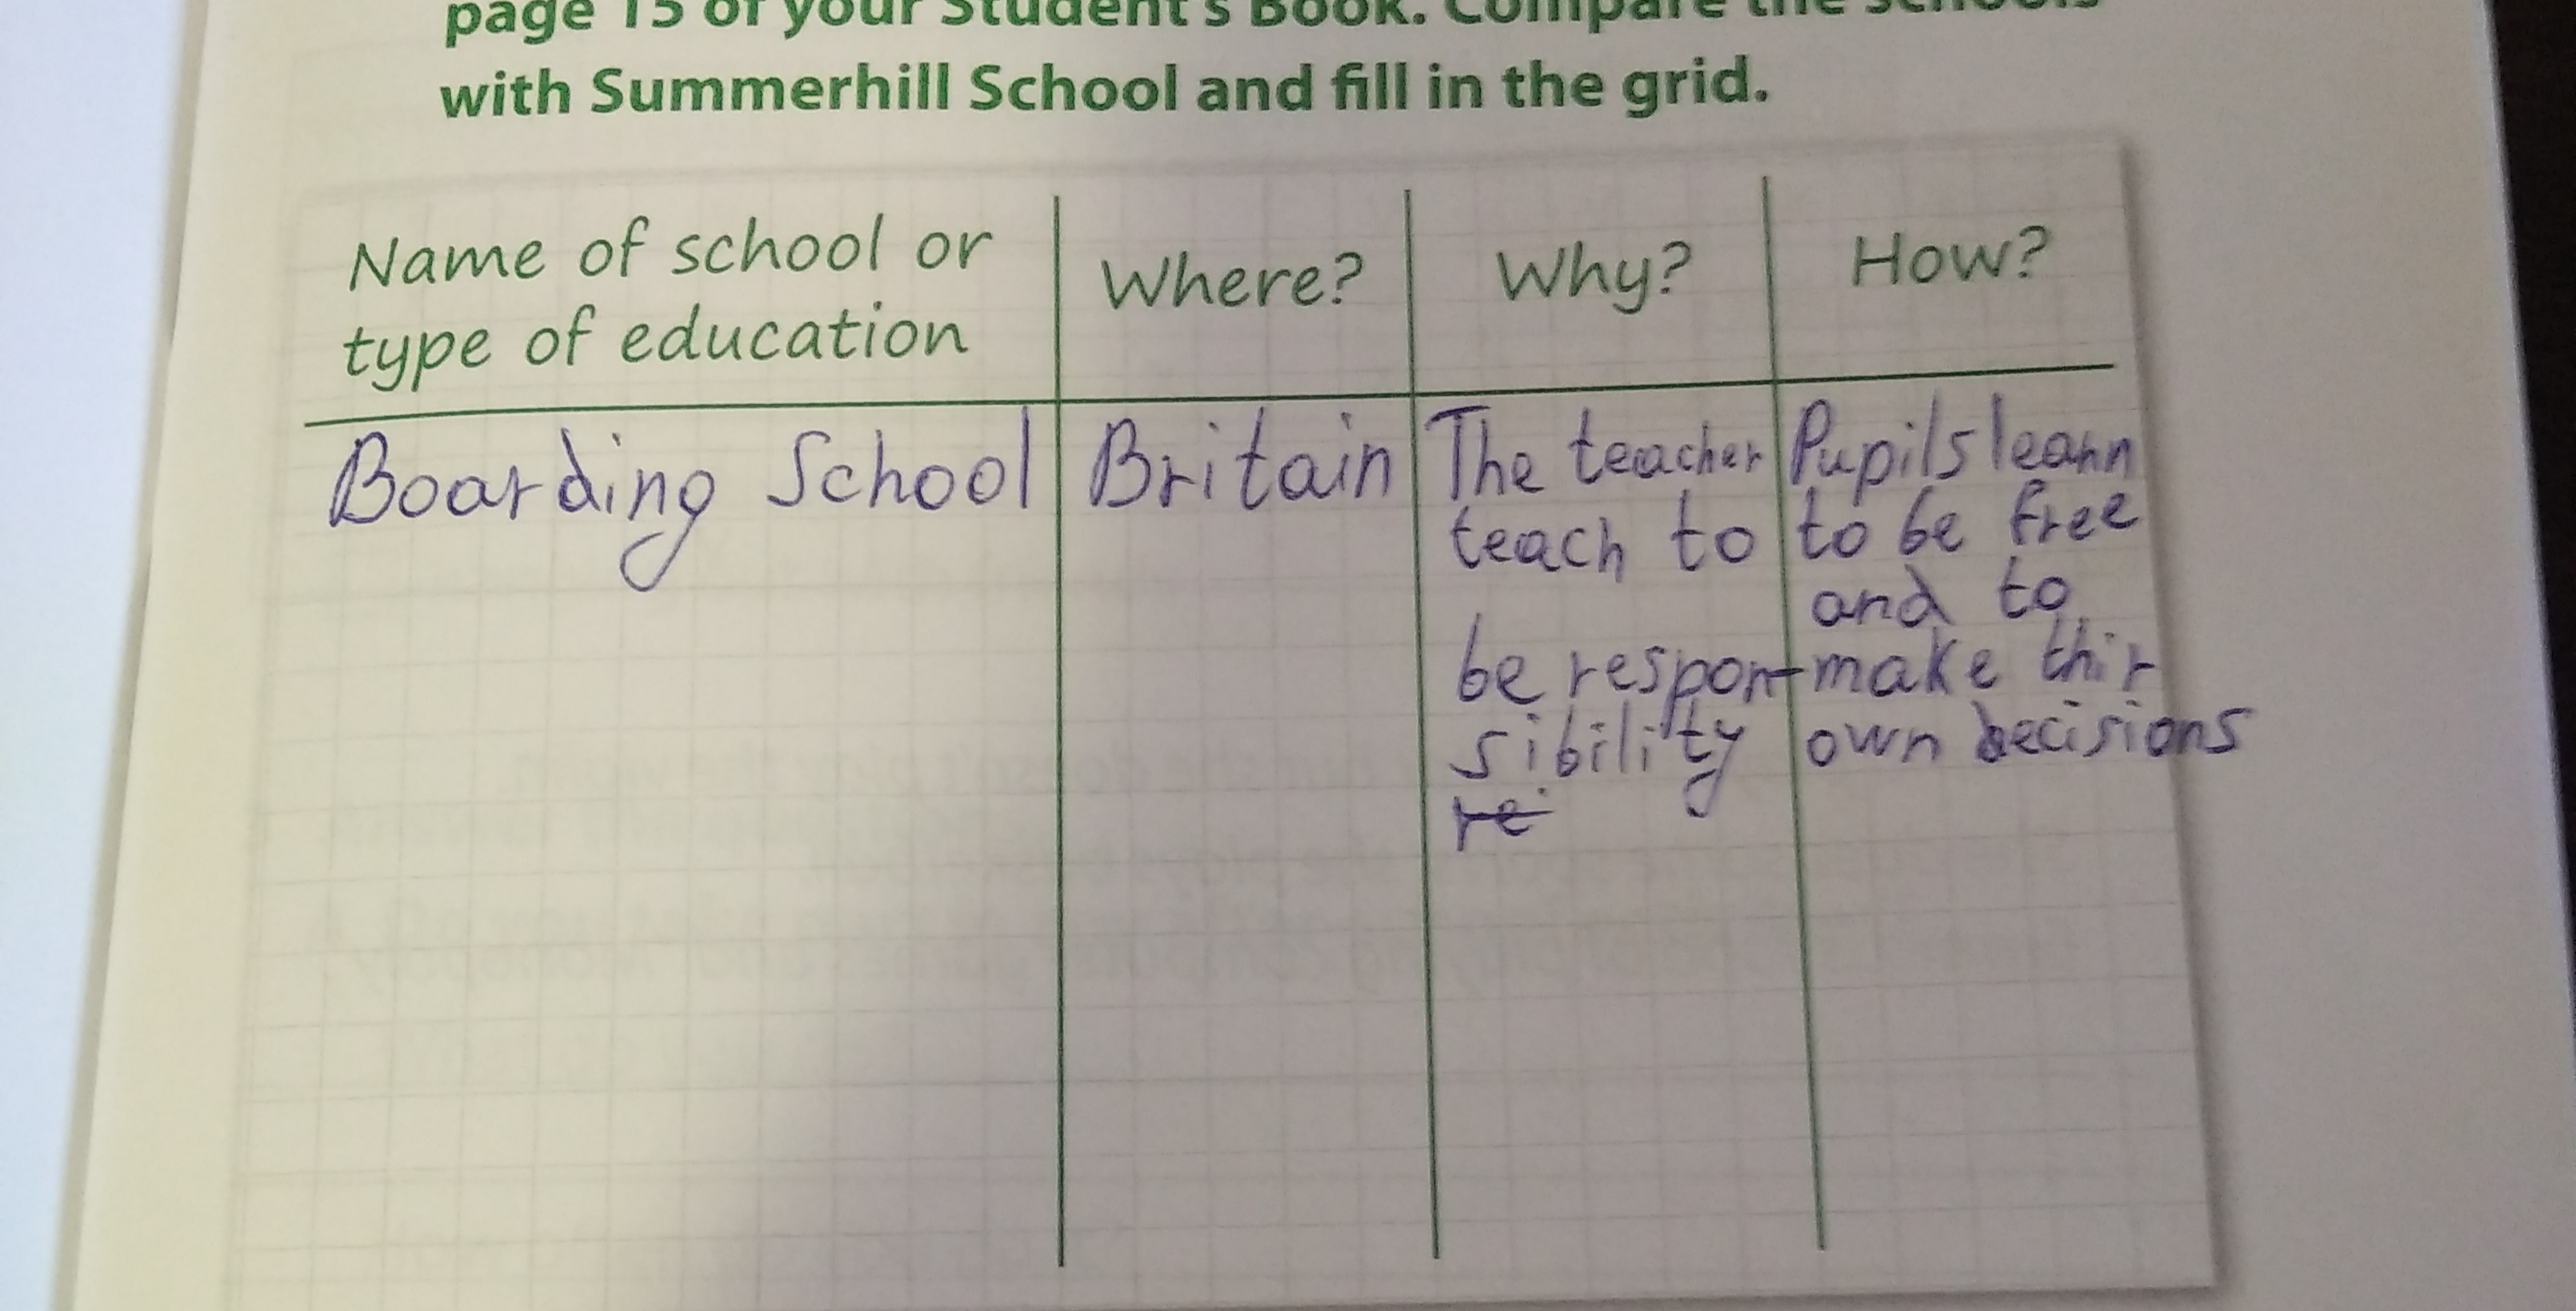 page 15 of your Student's Book. Compare the schools
with Summerhill School and fill in the grid.
Name of school or
type of education
Where?
Why?
How?
Boarding School
Britain
The teacher
teach to
be respon-
sibility
re
Pupils learn
to be free
and to
make thir
own decisions